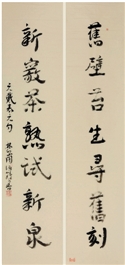 舊壁苔生尋舊刻
新巖茶熟試新泉